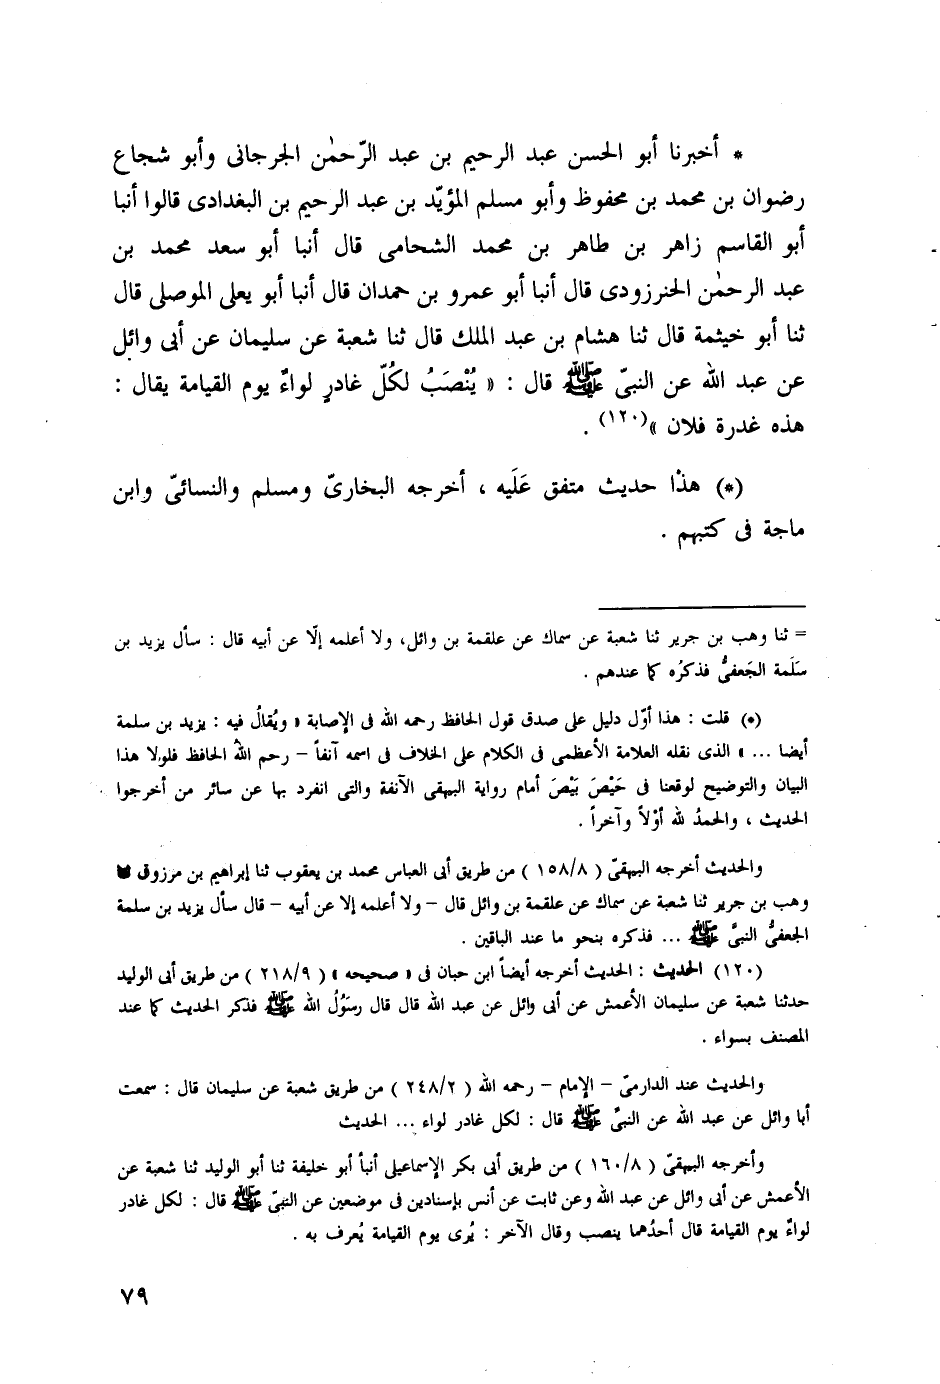 * أخبرنا أبو الحسن عبد الرحيم بن عبد الرّحمٰن الجرجانى وأبو شجاع
رضوان بن محمد بن محفوظ وأبو مسلم المؤيّد بن عبد الرحيم بن البغدادى قالوا أنبا
أبو القاسم زاهر بن طاهر بن محمد الشحامى قال أنبا أبو سعد محمد بن
عبد الرحمٰن الخنرزودى قال أنبا أبو عمرو بن حمدان قال أنبا أبو يعلى الموصلى قال
ثنا أبو خيثمة قال ثنا هشام بن عبد الملك قال ثنا شعبة عن سليمان عن أبى وائل
عن عبد الله عن النبىّ ﷺ قال : « يُنْصَبُ لكُلّ غادرٍ لواءٌ يوم القيامة يقال :
هذه غدرة فلان »(١٢٠) .
(*) هذْا حديث متفق عَلَيه ، أخرجه البخارىّ ومسلم والنسائىّ وابن
ماجة فى كتبهم .
= ثنا وهب بن جرير ثنا شعبة عن سماك عن علقمة بن وائل، ولا أعلمه إلّا عن أبيه قال : سأل يزيد بن
سَلَمة الجَعفىُّ فذكرُه كما عندهم .
(*) قلت : هذا أوّل دليل على صدق قول الحافظ رحمه الله فى الإصابة « ويُقالُ فيه : يزيد بن سلمة
أيضا ... » الذى نقله العلامة الأعظمى فى الكلام على الخلاف فى اسمه آنفاً – رحم اللهُ الحافظ فلولا هذا
البيان والتوضيح لوقعنا فى حَيْصَ بَيْصَ أمام رواية البيهقى الآنفة والتى انفرد بها عن سائر من أخرجوا
الحديث ، والحمدُ لله أوّلاً وآخراً .
والحديث أخرجه البيهقىّ ( ١٥٨/٨ ) من طريق أبى العباس محمد بن يعقوب ثنا إبراهيم بن مرزوق
وهب بن جرير ثنا شعبة عن سماك عن علقمة بن وائل قال – ولا أعلمه إلا عن أبيه – قال سأل يزيد بن سلمة
الجعفىُّ النبىَّ ﷺ ... فذكره بنحو ما عند الباقين .
(١٢٠) الحديث : الحديث أخرجه أيضاً ابن حبان فى « صحيحه » ( ٢١٨/٩ ) من طريق أبى الوليد
حدثنا شعبة عن سليمان الأعمش عن أبى وائل عن عبد الله قال قال رسَوُلُ الله ﷺ فذكر الحديث كما عند
المصنف بسواء .
والحديث عند الدارمىّ – الإمام – رحمه الله ( ٢٤٨/٢ ) من طريق شعبة عن سليمان قال : سمعت
أبا وائل عن عبد الله عن النبىِّ ﷺ قال : لكل غادر لواء ... الحديث
وأخرجه البيهقىّ ( ١٦٠/٨ ) من طريق أبى بكر الإسماعيلى أنبأ أبو خليفة ثنا أبو الوليد ثنا شعبة عن
الأعمش عن أبى وائل عن عبد الله وعن ثابت عن أنس بإسنادين فى موضعين عن النبىّ ﷺ قال : لكل غادر
لواءٌ يوم القيامة قال أحدُهما ينصب وقال الآخر : يُرى يوم القيامة يُعرف به .
٧٩